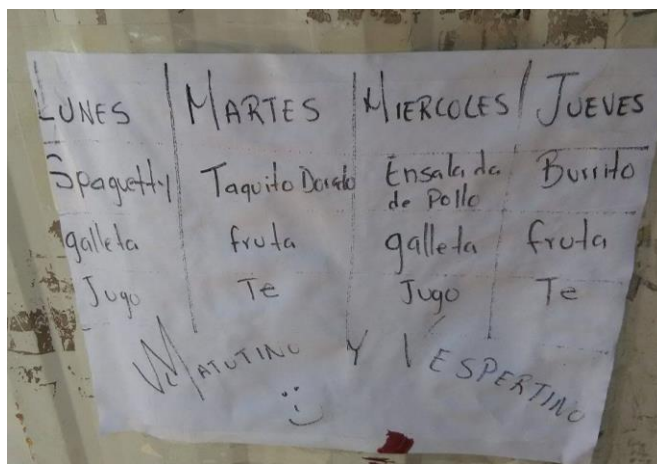 LUNES MARTES MIERCOLES JUEVES
Spaguetty Taquito Dorado Ensalada de Pollo Burrito
galleta fruta galleta fruta
Jugo Te Jugo Te
MATUTINO Y VESPERTINO